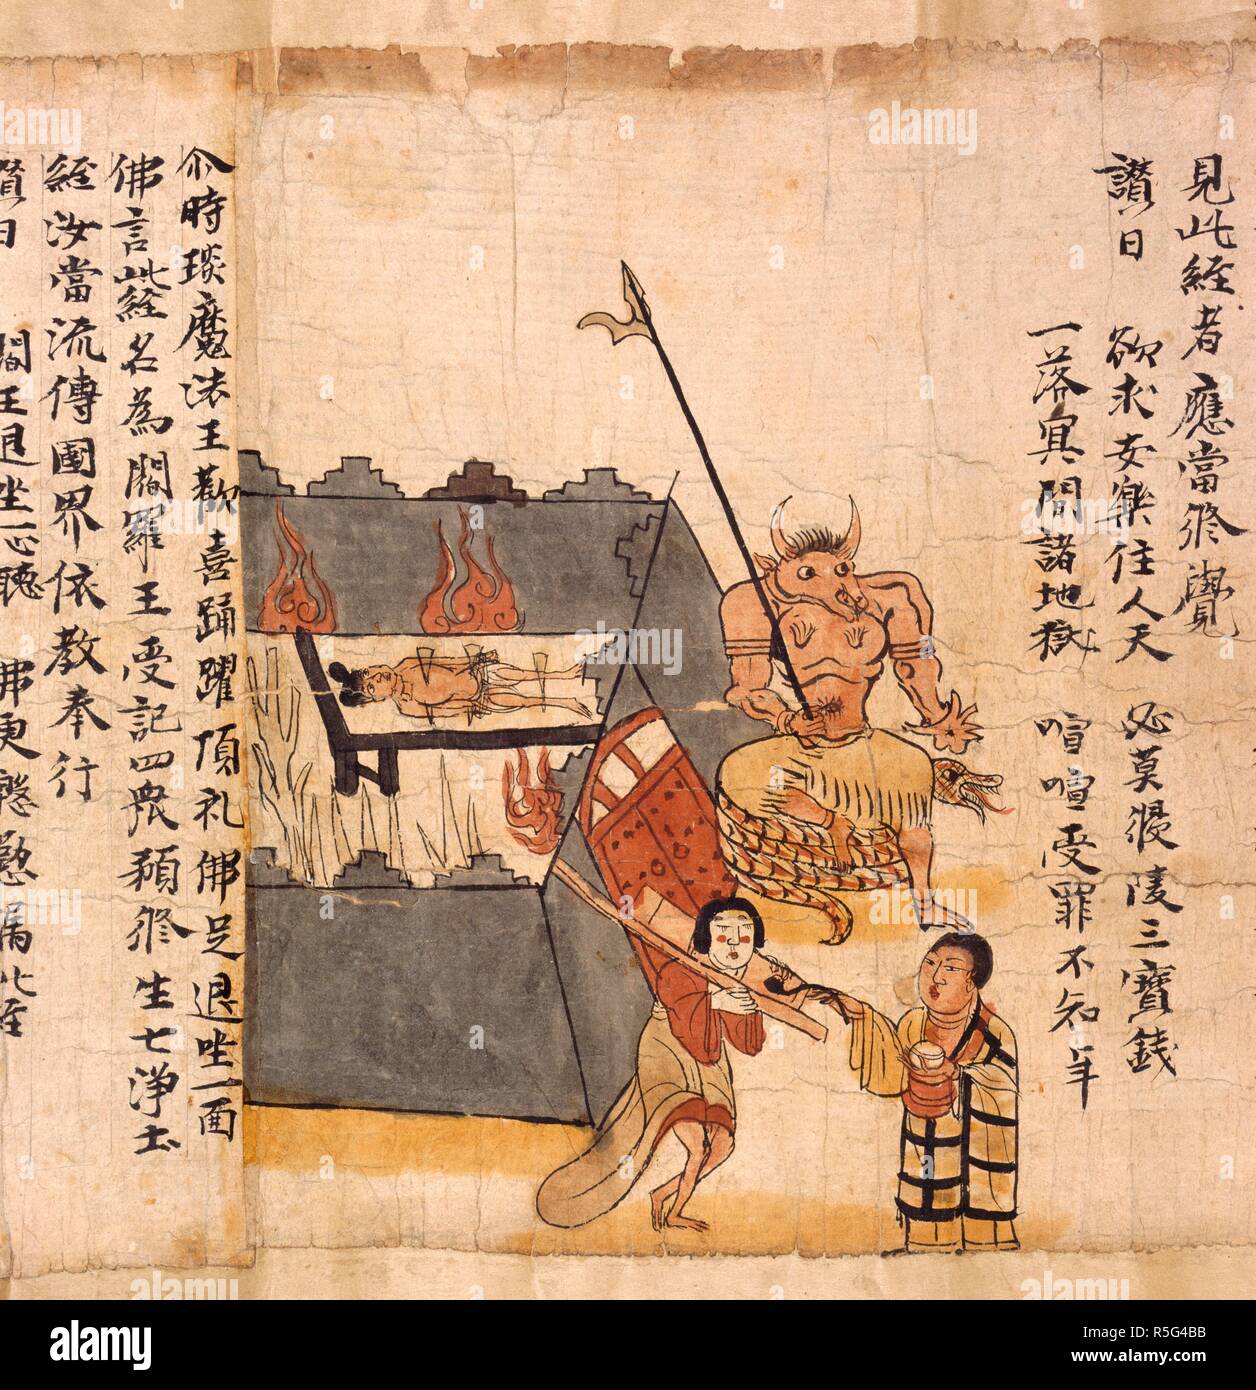 見此經者應當修覺
讃曰 欲求安樂住人天 必莫侵陵三寶錢
一落冥間諸地獄 喧喧受罪不知年
尒時琰魔法王歡喜踊躍頂礼佛足退坐一面
佛言此經名為閻羅王受記四衆預修生七淨土
經汝當流傳國界依教奉行
讃曰 閻王退坐一心聽 佛更慇懃囑此經
alamy
Image ID: R5G4BB
www.alamy.com